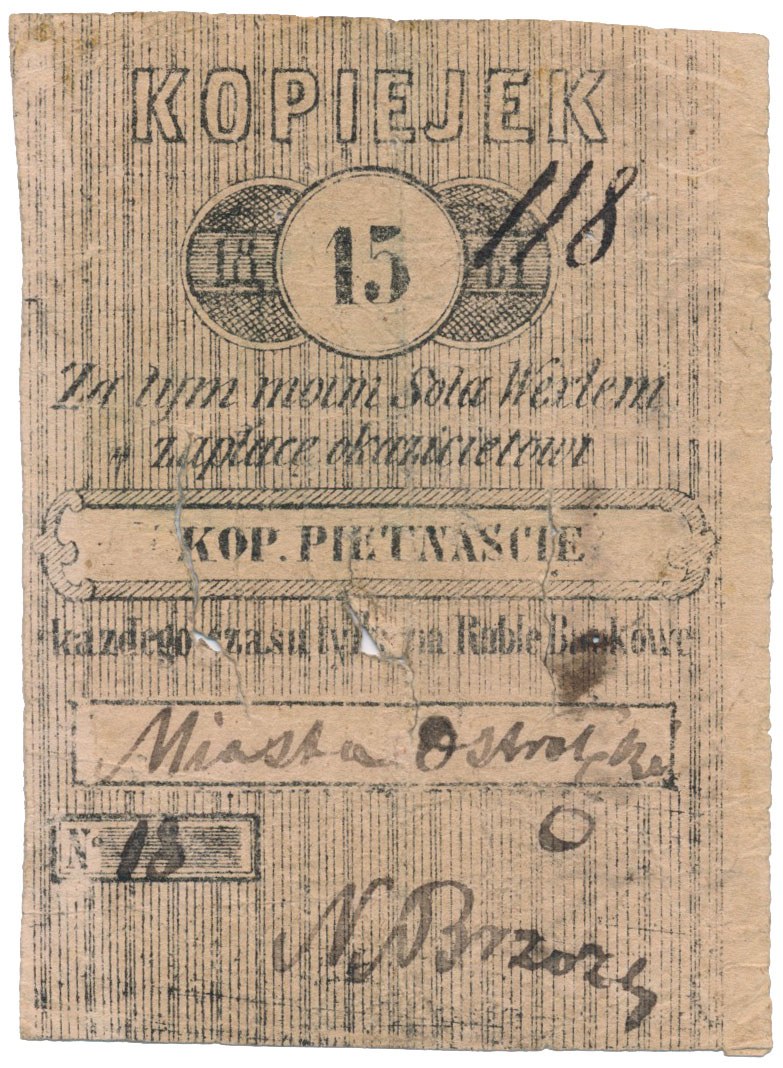 KOPIEJEK
18 15 61
118
Za tym moim Sola Wexlem
zapłacę okazicielowi
KOP. PIETNAŚCIE
każdego czasu tylko na Ruble Bankowe
Miasta Ostrołęka
Nº 18
N. Brzozy